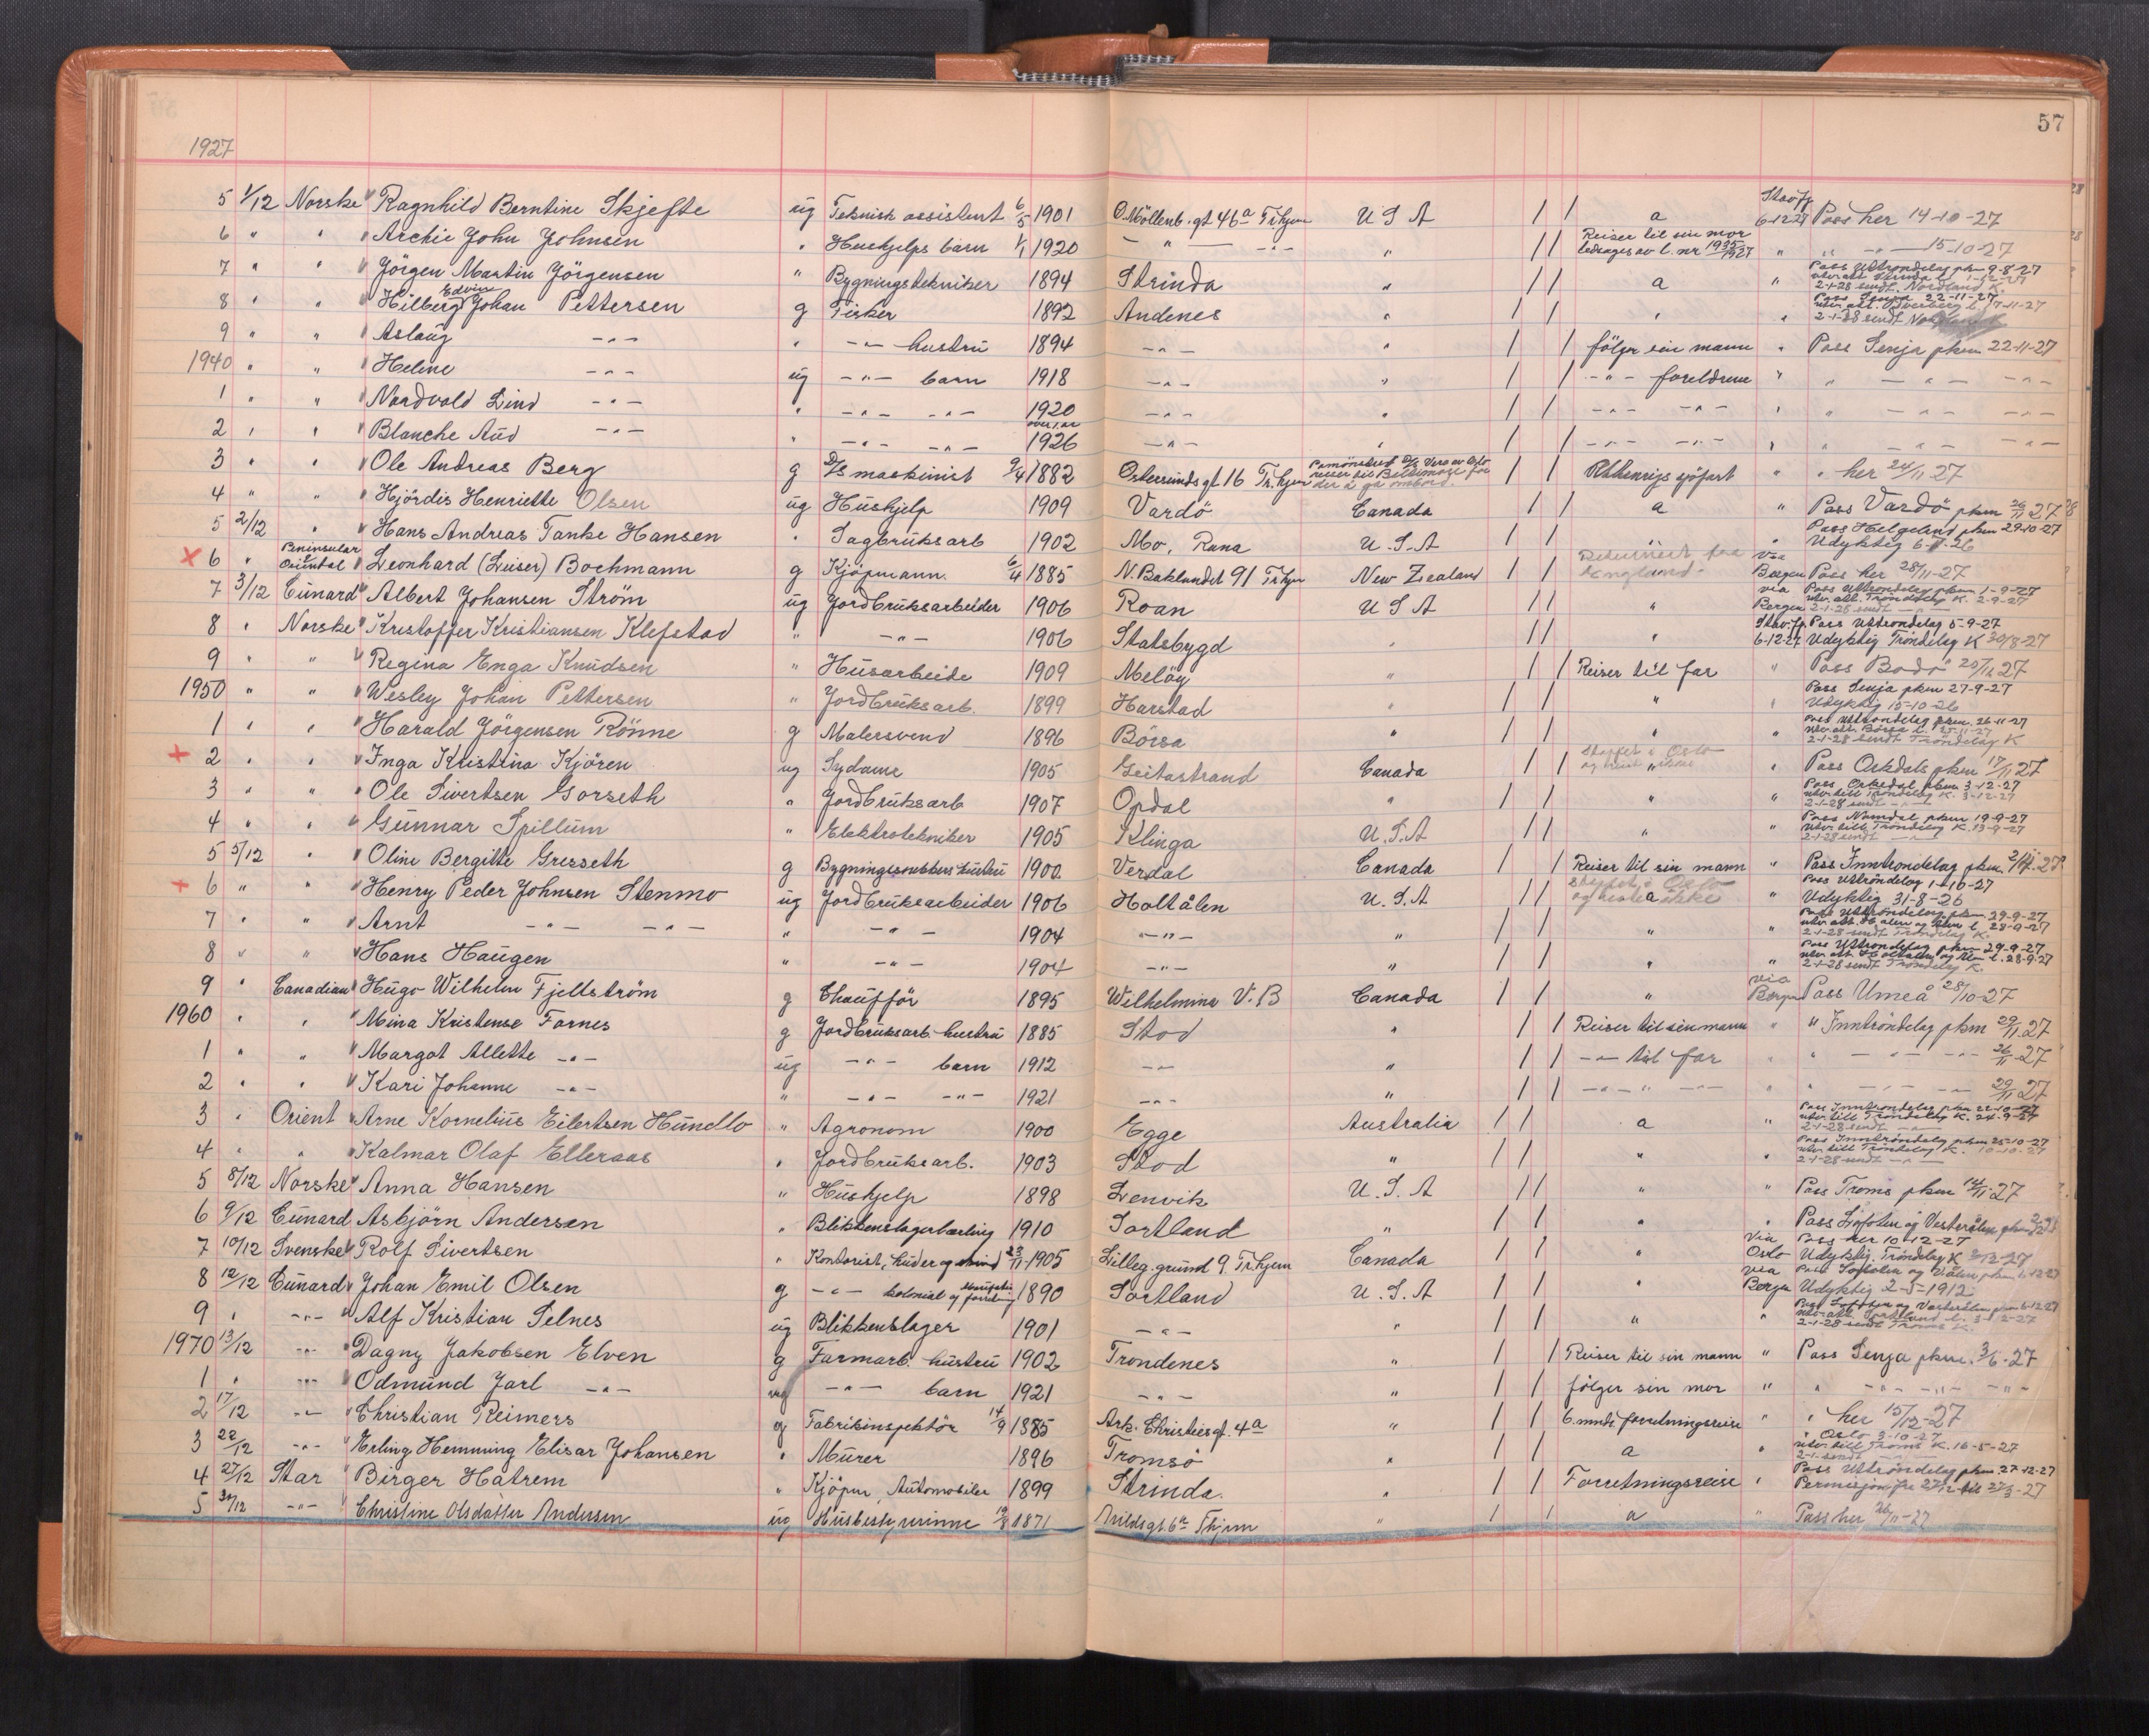 57
1927
5 1/12 Norske Ragnhild Berntine Skjefte ug Teknisk assistent 6/5 1901 O. Möllenb. gt 46a Tr.hjem U S A / / a Stavfj 6-12-27 Pass her 14-10-27
6 " " Archie John Johnsen " Huskjelps barn 1/1 1920 - " - -"- " / / Reiser til sin mor ledsages av l. nr 1935/1927 " " -"- 15-10-27
7 " " Jörgen Martin Jörgensen " Bygningstekniker 1894 Strinda " / / a " Pass Uttröndelag pkm 9-8-27 utv. att. Strinda l. 1-12-27 2-1-28 sendt. Nordland K.
8 " " Hilberg Edvin Johan Pettersen g Fisker 1892 Andenes " / / " " Pass Senja 22-11-27 utv. att. l. 17-11-27 2-1-28 sendt
9 " " Aslaug -"- " -"- hustru 1894 -"- " / / fölger sin mann " Pass Senja pkm 22-11-27
1940 " " Helene -"- ug -"- barn 1918 -"- " / / -"- foreldrene " " -"- -"-
1 " " Nordvald Lind -"- " -"- -"- 1920 -"- " / / -"- -"- " " -"- -"-
2 " " Blanche Aud -"- " -"- -"- over 1 år 1926 -"- " / / -"- -"- " " -"- -"-
3 " " Ole Andreas Berg g D/S maskinist 9/4 1882 Östersunds gt 16 Tr.hjem Pamönstret D/S Vera av Oslo reiser til Baltimore for der å gå ombord. / / Utenrigs sjöfart " " her 24/11 27
4 " " Hjördis Henriette Olsen ug Huskjelp 1909 Vardö Canada / / a " Pass Vardö pkm 26/11 27
5 2/12 " Hans Andreas Tanke Hansen " Sagbruksarb 1902 Mo, Rana U.S.A / / " " Pass Helgeland pkm 29-10-27 Udyktig 6-11-26
x 6 " Peninsular & Oriental Leonhard (Leiser) Bochmann g Kjöpmann. 6/4 1885 N. Baklandet 91 Tr.hjm New Zealand / / Returnert fra England. Via Bergen Pass her 28/11-27
7 3/12 Cunard Albert Johansen Ström ug Jordbruksarbeider 1906 Roan U S A / / " via Bergen Pass Uttröndelag pkm 1-9-27 utv. att. Tröndelag K. 2-9-27 2-1-28 sendt -"-
8 " Norske Kristoffer Kristiansen Klefstad " -"- 1906 Statsbygd " / / " Stav.fj. 6-12-27 Pass Uttröndelag 5-9-27 Udyktig Tröndelag K 30/8-27
9 " " Regina Enga Knudsen " Husarbeide 1909 Melöy " / / Reiser til far " Pass Bodö 29/11 27
1950 " " Wesley Johan Pettersen " Jordbruksarb. 1899 Harstad " / / " " Pass Senja pkm 27-9-27 Udyktig 15-10-26
1 " " Harald Jörgensen Rönne g Malersvend 1896 Börsa " / / " " Pass Uttröndelag pkm. 26-11-27 utv. att. Börsa l. 25-11-27 2-1-28 sendt Tröndelag K
+ 2 " " Inga Kristina Kjören ug Sydame 1905 Geitastrand Canada / / stoppet i Oslo og reiste ikke " " Pass Orkdals pkm 17/11 27
3 " " Ole Sivertsen Gorseth " Jordbruksarb 1907 Opdal " / / " " Pass Orkedal pkm 3-12-27 utv. till Tröndelag K. 3-12-27 2-1-28 sendt -"-
4 " " Gunnar Spillum " Elektrotekniker 1905 Klinga U.S.A / / " " Pass Namdal pkm 19-9-27 utv. till Tröndelag K. 13-9-27 2-1-28 sendt -"-
5 5/12 " Oline Bergitte Gresseth g Bygningssnekkers hustru 1900 Verdal Canada / / Reiser til sin mann " Pass Inntröndelag pkm. 2/11-27
+ 6 " " Henry Peder Johnsen Stenmo ug Jordbruksarbeider 1906 Holtålen U.S.A / / stoppet i Oslo og reiste ikke a " Pass Uttröndelag 1-10-27 Udyktig 31-8-26
7 " " Arnt -"- -"- " -"- 1904 -"- " / / " " Pass Uttröndelag pkm. 29-9-27 utv. att. l. 28-9-27 2-1-28 sendt Tröndelag K.
8 " " Hans Haugen " -"- 1904 -"- " / / " " Pass Uttröndelag pkm 29-9-27 utv. att. Holtålen og l. 28-9-27 2-1-28 sendt Tröndelag K.
9 " Canadian Hugo Wilhelm Fjellström g Chaufför 1895 Wilhelmina V.B Canada / / " via Bergen Pass Umeå 28/10-27
1960 " " Mina Kristense Fornes g Jordbruksarb. hustru 1885 Stod " / / Reiser til sin mann " " Inntröndelag pkm 29/11 27
1 " " Margot Allette -"- ug -"- barn 1912 -"- " / / -"- til far " " -"- -"- 26/11-27
2 " " Kari Johanne -"- " -"- -"- 1921 -"- " / / -"- " -"- " " -"- -"- 29/11 27
3 " Orient Arne Kornelius Eilertsen Hundlo " Agronom 1900 Egge Australia / / a " Pass Inntröndelag pkm 22-10-27 utv. till Tröndelag K. 24-9-27 2-1-28 sendt -"-
4 " " Kalmar Olaf Elleraas " Jordbruksarb. 1903 Stod " / / " " Pass Inntröndelag pkm 25-10-27 utv. till Tröndelag K. 10-10-27 2-1-28 sendt -"-
5 8/12 Norske Anna Hansen " Huskjelp 1898 Lenvik U.S.A / / " " Pass Troms pkm 14/11-27
6 9/12 Cunard Asbjörn Andersen " Blikkenslagerlærling 1910 Sortland " / / " " Pass Lofoten og Vesterålen pkm
7 10/12 Svenske Rolf Sivertsen " Kontorist, huder og skind 23/11-1905 Lilleg. grund 9. Tr.hjem Canada / / " Via Oslo Pass her 10-12-27 Udyktig. Tröndelag K 3/12-27
8 12/12 Cunard Johan Emil Olsen g -"- kolonial og forretning 1890 Sortland U.S.A / / " via Bergen Pass Lofoten og V.ålen pkm 1-12-27 Udyktig 2-5-1912
9 " -"- Alf Kristian Selnes ug Blikkenslager 1901 -"- " / / " " Pass Lofoten og Vesterålen pkm 6-12-27 utv. att. Sortland l. 3-12-27 2-1-28 sendt Troms K.
1970 13/12 -"- Dagny Jakobsen Elven g Farmarb. hustru 1902 Trondenes " / / Reiser til sin mann " Pass Senja pkm. 3/6-27
1 " -"- Odmund Jarl -"- ug -"- barn 1921 -"- " / / fölger sin mor " " -"- -"- -"-
2 17/12 -"- Christian Reimers g Fabrikinspektör 14/9 1885 Ark. Christies gt. 4a " / / 6 mnds forretningsreise " " her 15/12-27
3 22/12 -"- Erling Hemming Elisar Johansen " Murer 1896 Tromsö " / / a " " Oslo 3-10-27 utv. till Troms K. 16-5-27 2-1- sendt -"-
4 27/12 Star Birger Håtrem " Kjöpm, Automobiler 1899 Strinda. " / / Forretningsreise " Pass Uttröndelag pkm. 27-12-27 Permisjon fra 27/12 til 27/3-27
5 31/12 -"- Christine Olsdatter Andersen ug Husbestyrerinne 19/8 1871 Arildsgt. 6a Thjem " / / a " Pass her 26/11-27